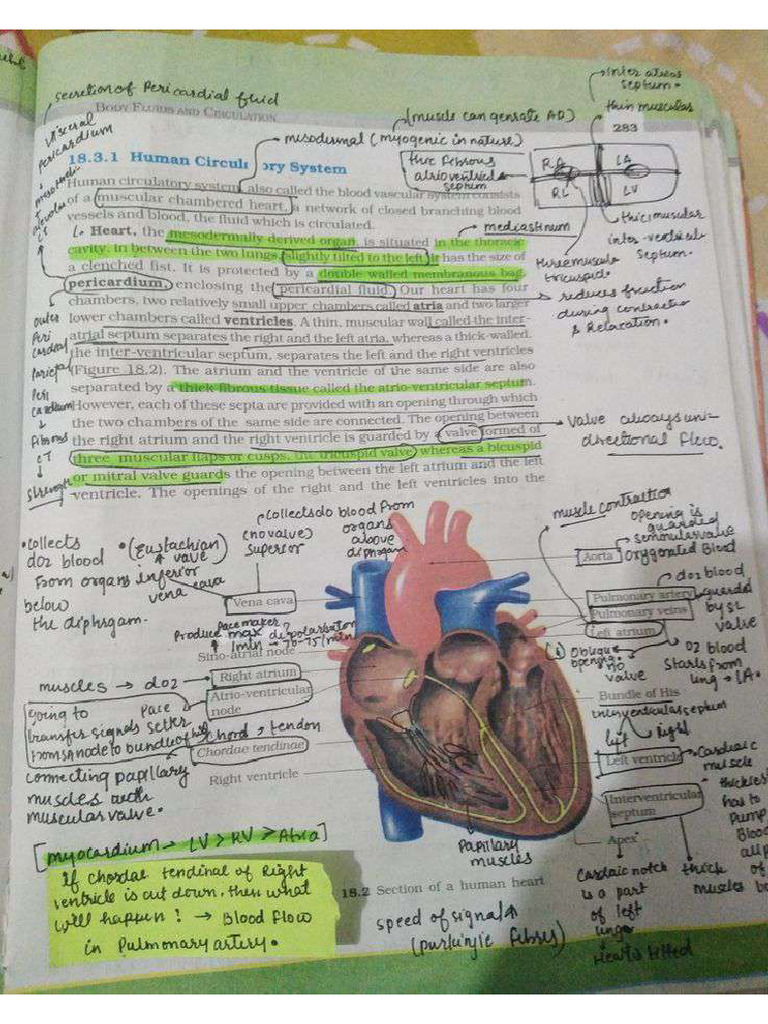 secretion of Pericardial fluid
BODY FLUIDS AND CIRCULATION
283
inter atreas
septum.
thin muscular
(muscle can genrate AP)
mesodermal (myogenic in nature)
thic fibrous
atrioventricul
septum
R.A
LA
LV
thic muscular
inter-ventricul
septum.
three muscula
tricuspid.
Visceral
Pericardium
18.3.1 Human Circulatory System
Human circulatory system, also called the blood vascular system consists
of a muscular chambered heart, a network of closed branching blood
vessels and blood, the fluid which is circulated.
mediastinum
Heart, the mesodermally derived organ, is situated in the thoracic
cavity, in between the two lungs, slightly tilted to the left. It has the size of
a clenched fist. It is protected by a double walled membranous bag,
pericardium, enclosing the pericardial fluid. Our heart has four
chambers, two relatively small upper chambers called atria and two larger
lower chambers called ventricles. A thin, muscular wall called the inter-
atrial septum separates the right and the left atria, whereas a thick-walled,
the inter-ventricular septum, separates the left and the right ventricles
(Figure 18.2). The atrium and the ventricle of the same side are also
separated by a thick fibrous tissue called the atrio-ventricular septum.
However, each of these septa are provided with an opening through which
the two chambers of the same side are connected. The opening between
the right atrium and the right ventricle is guarded by a valve formed of
three muscular flaps or cusps, the tricuspid valve, whereas a bicuspid
or mitral valve guards the opening between the left atrium and the left
ventricle. The openings of the right and the left ventricles into the
reduces friction
during contraction
& Relaxation.
outer
Peri
cardial
Parietal
Peri
cardium
Fibrous
CT
Strength
valve always uni-
directional flow.
collects do2 blood from
organs
above
diphragm
(no valve)
superior
•collects
do2 blood
from organs
below
the diphragm.
•(Eustachian)
valve
inferior
vena cava
Vena cava
Pacemaker
Produce max depolarisation
1min → 70-75/min
Sino-atrial node
muscles → do2
Right atrium
Pace
setter
Atrio-ventricular
node
going to
transfer signals
from SA node to bundle of his
chord, tendon
Chordae tendinae
connecting papillary
muscles with
muscular valve.
Right ventricle
muscle contraction
opening is
guarding
semilunar valve
Oxygenated Blood
Aorta
do2 blood
Pulmonary artery
guarded
by SL
valve
Pulmonary veins
Left atrium
Oblique
opening
no
valve
O2 blood
starts from
lung → LA.
Bundle of His
interventricular septum
left
right
Left ventricle
cardiac
muscle
Interventricular
septum
thickest
has to
Pump
Blood
all p
of
b
thick
muscles
Apex
Cardaic notch
is a part
of left
lung
Heart tilted
Papillary
muscles
[myocardium → LV > RV > Atria]
If chordae tendinal of Right
ventricle is cut down, then what
will happen! → Blood flow
in Pulmonary artery.
18.2 Section of a human heart
speed of signal ↑
(purkinjic fibres)